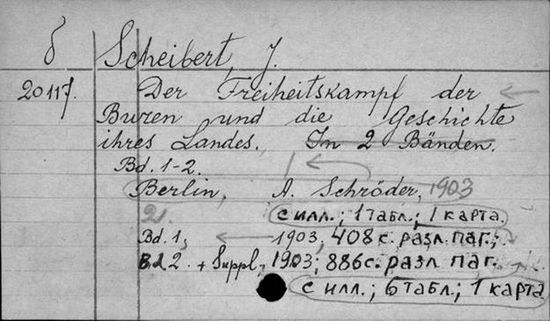 б Scheibert, J.
20117. Der Freiheitskampf der
Buren und die Geschichte
ihres Landes. In 2 Bänden.
Bd. 1-2.
Berlin, A. Schröder, 1903
2t. с илл.; 1 табл.; 1 карта.
Bd. 1, 1903, 408 с. разл. паг.;
Bd 2. + Suppl., 1903; 886 с. разл. паг.
с илл.; 6 табл.; 1 карта